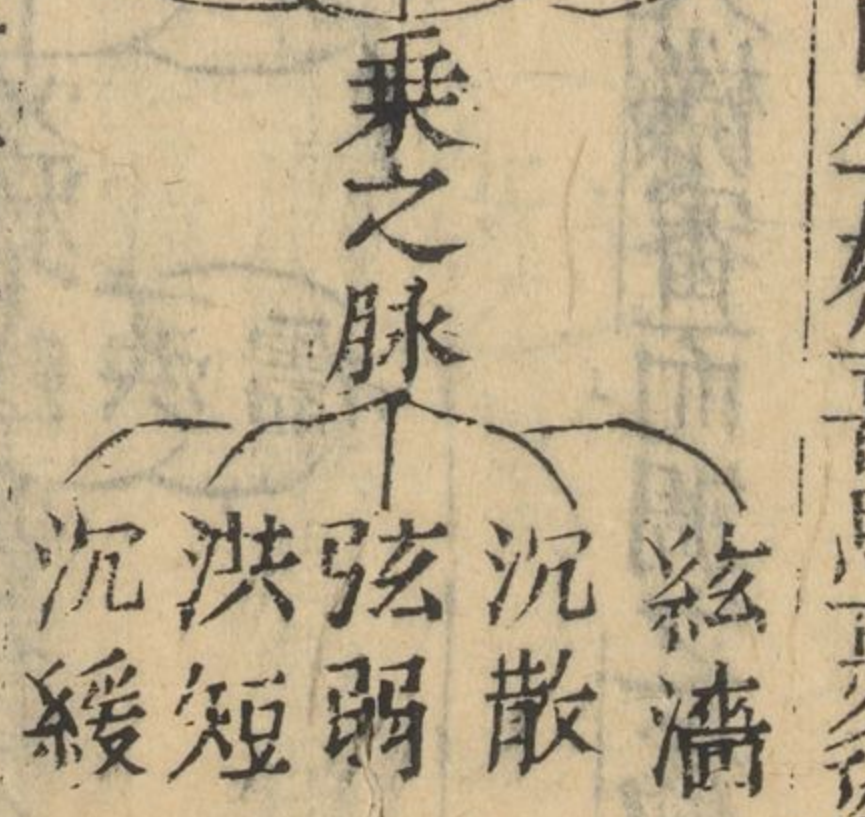 乗之脉
絃濇
沉散
弦弱
洪短
沉緩